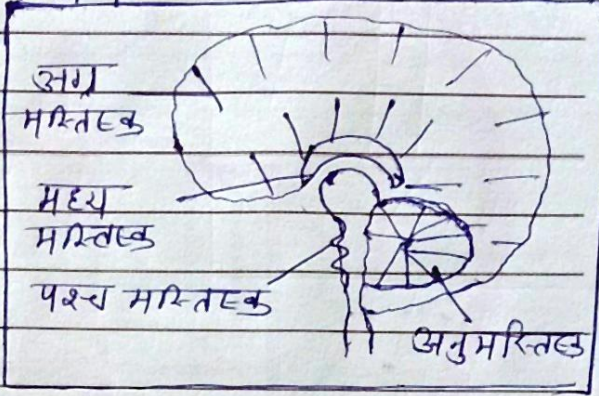 अग्र
मस्तिष्क
मध्य
मस्तिष्क
पश्च मस्तिष्क
अनुमस्तिष्क